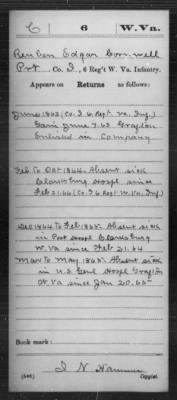 C | 6 | W.Va.
Reuben Edgar Cornwell
Pvt, Co. I, 6 Reg't W. Va. Infantry.
Appears on Returns as follows:
June 1863 (Co. I 6 Regt. Va. Inf.)
Gain June 7.63 Grafton
Enlisted in Company
Feb to Oct 1864. Absent sick
Clarksburg Hospl since
Feb 21.64 (Co I 6 Regt W. Va. Inf.)
Dec 1864 to Feb 1865. Absent sick
in Post Hospl Clarksburg
W. Va since Feb 21.64
Mar to May 1865. Absent sick
in U.S. Genl Hospl Grafton
W. Va since Jan 20.65
Book mark:
(546)
Copyist.